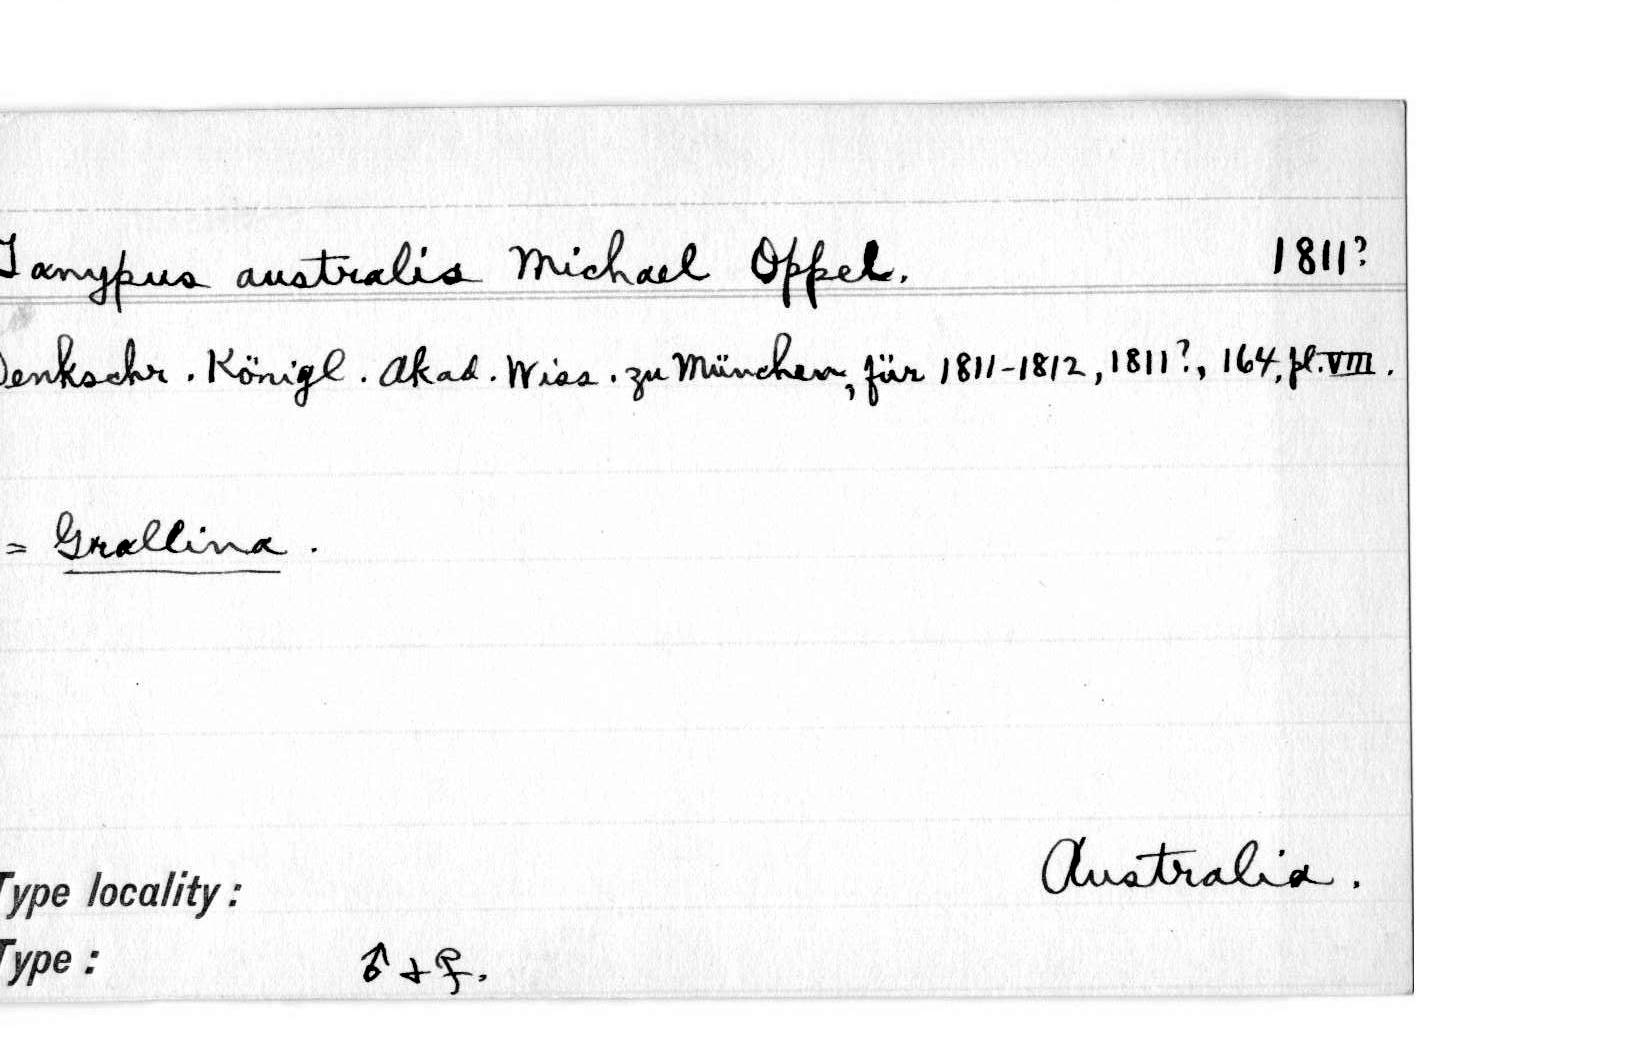 Tanypus australis Michael Oppel. 1811?
Denkschr. Königl. Akad. Wiss. zu München, für 1811-1812, 1811?, 164, pl. VIII.
= Grallina.
Australia.
Type locality:
Type: ♂ + ♀.